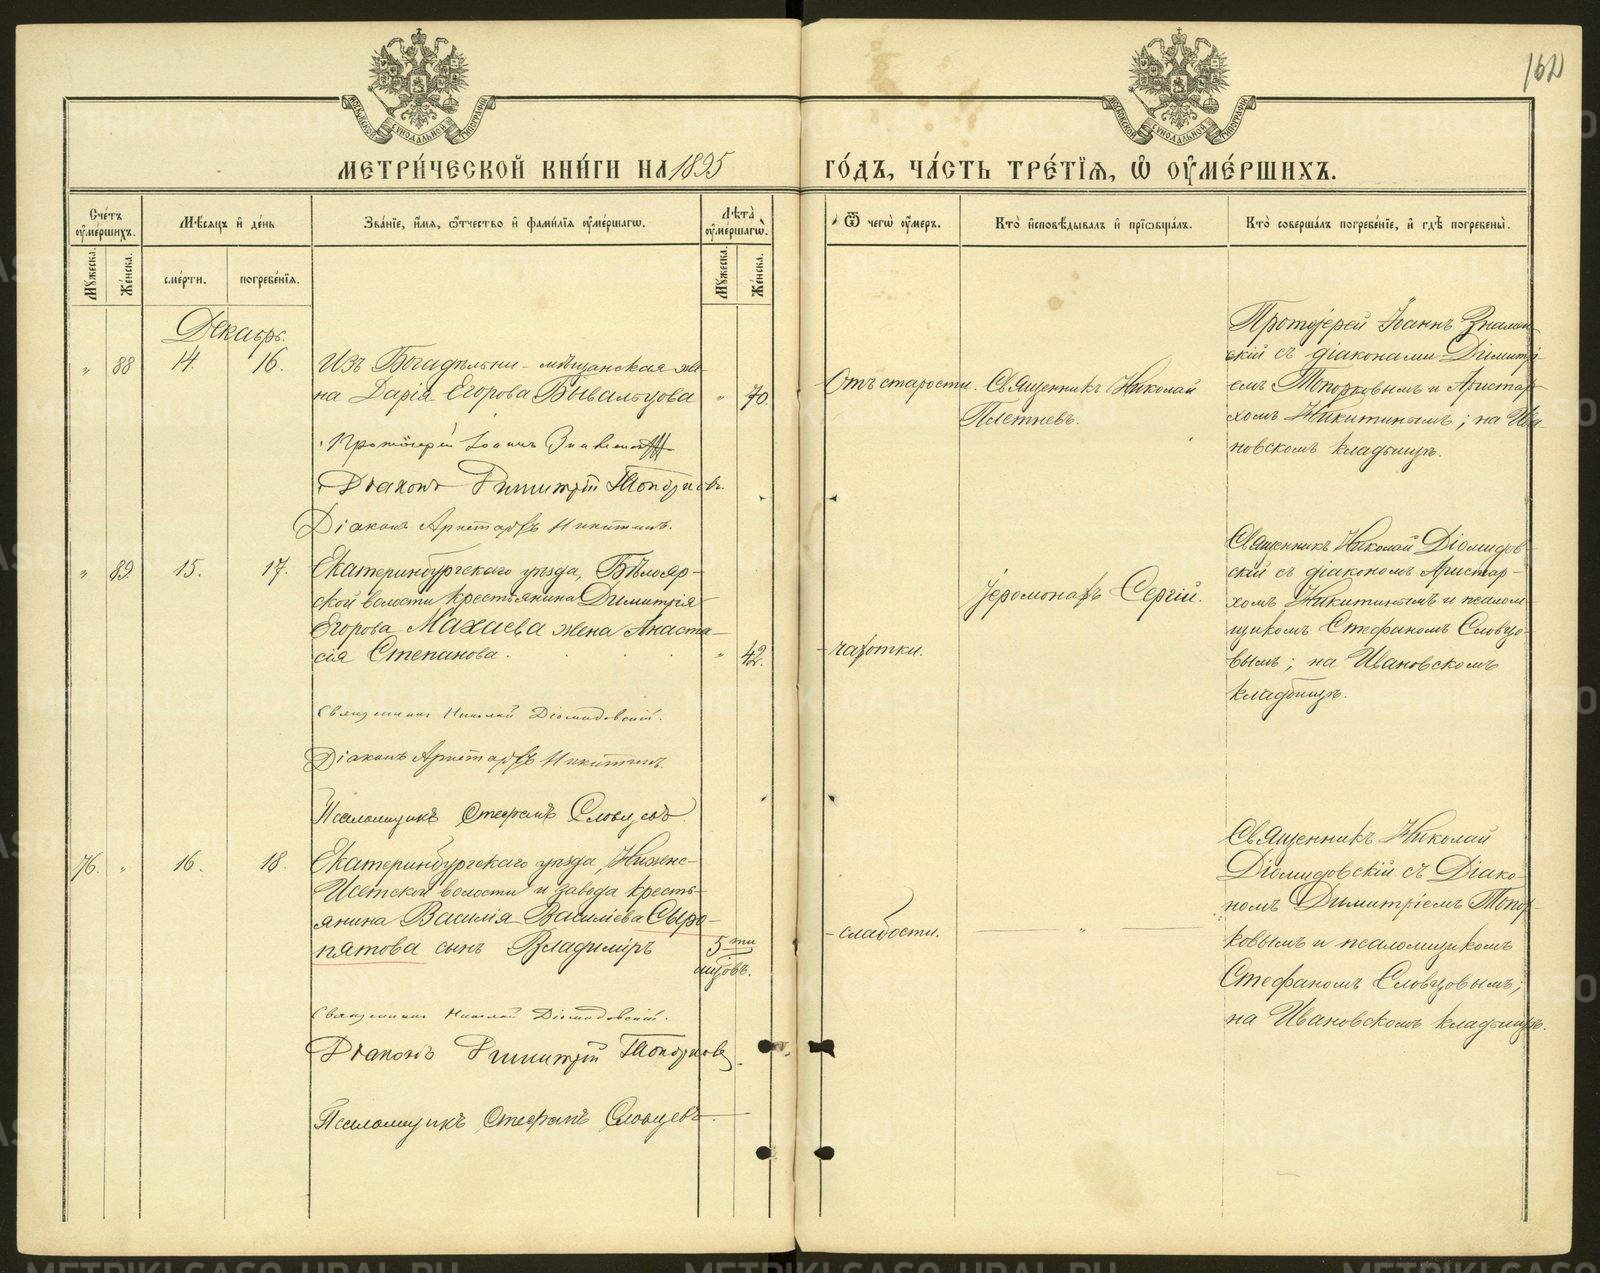 162
МЕТРИ́ЧЕСКОЙ КНИ́ГИ НА 1895 ГО́ДЪ, ЧА́СТЬ ТРЕ́ТІѦ, Ѡ ОУМЕ́РШИХЪ.
Сче́тъ оумершихъ.
Мѣ́сяцъ и де́нь
Зва́ніе, и́мя, ѻтчество и фами́лія оуме́ршагѡ.
Лѣ́та оуме́ршагѡ.
Ѿ чегѡ̀ оу́меръ.
Кто̀ исповѣ́дывалъ и пріѡбща́лъ.
Кто̀ соверша́лъ погребе́ніе, и гдѣ̀ погребены̀.
Мꙋ́жеска.
Же́нска.
сме́рти.
погребе́нія.
Мꙋ́жеска.
Же́нска.
Декабрь.
" 88 14. 16.
Изъ Богадѣльни - мѣщанская же-
на Дарія Егорова Бывальцова
" 70.
Отъ старости.
Священникъ Николай
Плетневъ.
Протоіерей Іоаннъ Знамен-
скій съ діаконами Димитрі-
емъ Топорковымъ и Аристар-
хомъ Никитинымъ; на Ива-
новскомъ кладбищѣ.
Протоіерей Іоаннъ Знаменскій
Діаконъ Димитрій Топорковъ.
Діаконъ Аристархъ Никитинъ.
" 89. 15. 17.
Екатеринбургскаго уѣзда, Бѣлояр-
ской волости крестьянина Димитрія
Егорова Махаева жена Анаста-
сія Степанова.
" 42.
чахотки.
Іеромонахъ Сергій.
Священникъ Николай Діомидов-
скій съ діакономъ Аристар-
хомъ Никитинымъ и псалом-
щикомъ Стефаномъ Словцо-
вымъ; на Ивановскомъ
кладбищѣ.
Священникъ Николай Діомидовскій.
Діаконъ Аристархъ Никитинъ.
Псаломщикъ Стефанъ Словцовъ
76. " 16. 18.
Екатеринбургскаго уѣзда, Нижне-
Исетской волости и завода кресть-
янина Василія Василіева Сыро-
пятова сынъ Владиміръ
5-ти
мцовъ.
слабости.
"
Священникъ Николай
Діомидовскій съ Діако-
номъ Димитріемъ Топор-
ковымъ и псаломщикомъ
Стефаномъ Словцовымъ;
на Ивановскомъ кладбищѣ.
Священникъ Николай Діомидовскій.
Діаконъ Димитрій Топорковъ
Псаломщикъ Стефанъ Словцовъ.
METRIKI.GASO-URAL.RU